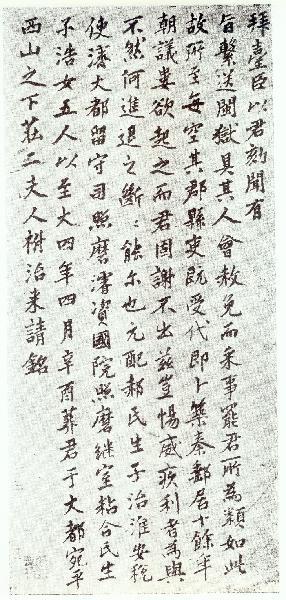 拜臺臣以君劾聞有
旨繫送閩獄具其人會赦免而采事罷君所為類如此
故所至每空其郡縣吏既受代即卜築秦鄠居十餘年
朝議屢欲起之而君固謝不出茲豈惕威疚利者為與
不然何進退之斷斷能尔也元配郝氏生子治淮安稅
使濤大都留守司照磨濬資國院照磨繼室粘合氏生
子浩女五人以至大四年四月辛酉葬君于大都宛平
西山之下莊三夫人祔治来請銘